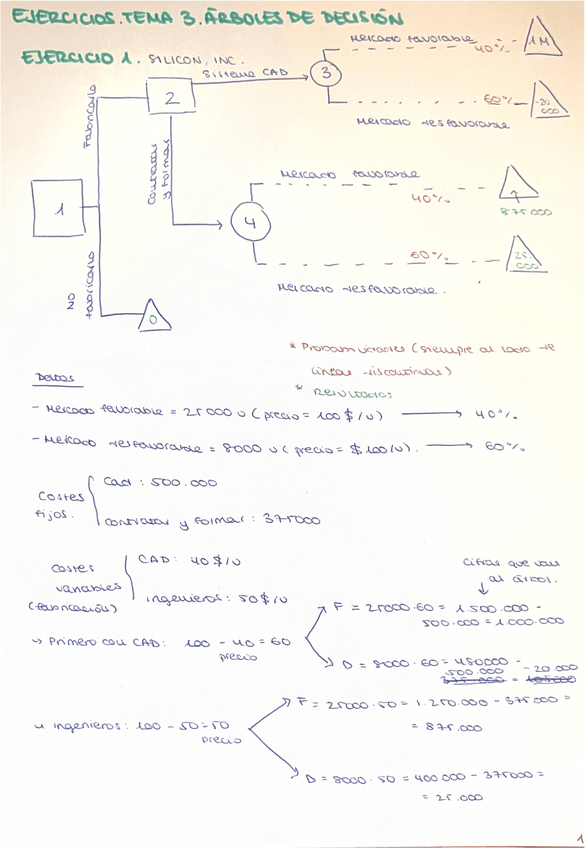 EJERCICIOS.TEMA 3.ÁRBOLES DE DECISIÓN
EJERCICIO 1. SILICON, INC.
Mercado favorable
40%
1M
Sistema CAD
3
Fabricarlo
2
60%
-20
000
Mercado desfavorable
Contratar
y formar
Mercado favorable
40%
875 000
1
4
60%
25.
000
Mercado desfavorable.
NO
fabricarlo
0
* Probabilidades (siempre al lado de
líneas discontinuas)
* Resultados
Datos
- Mercado favorable = 25 000 u (precio = 100 $/u) → 40%
- Mercado desfavorable = 8000 u (precio = $100/u). → 60%
Costes
fijos.
Cad : 500.000
contratar y formar : 375000
Costes
variables
(fabricación)
CAD: 40 $/u
ingenieros: 50 $/u
cifras que van
al árbol.
↳ Primero con CAD: 100 - 40 = 60
precio
F = 25000·60 = 1.500.000 -
500.000 = 1.000.000
D = 8000·60 = 480000 -
500.000 - 20 000
375 000 = 105000
↳ ingenieros: 100 - 50 = 50
precio
F = 25000·50 = 1.250.000 - 375.000 =
= 875.000
D = 8000·50 = 400 000 - 375000 =
= 25.000
1